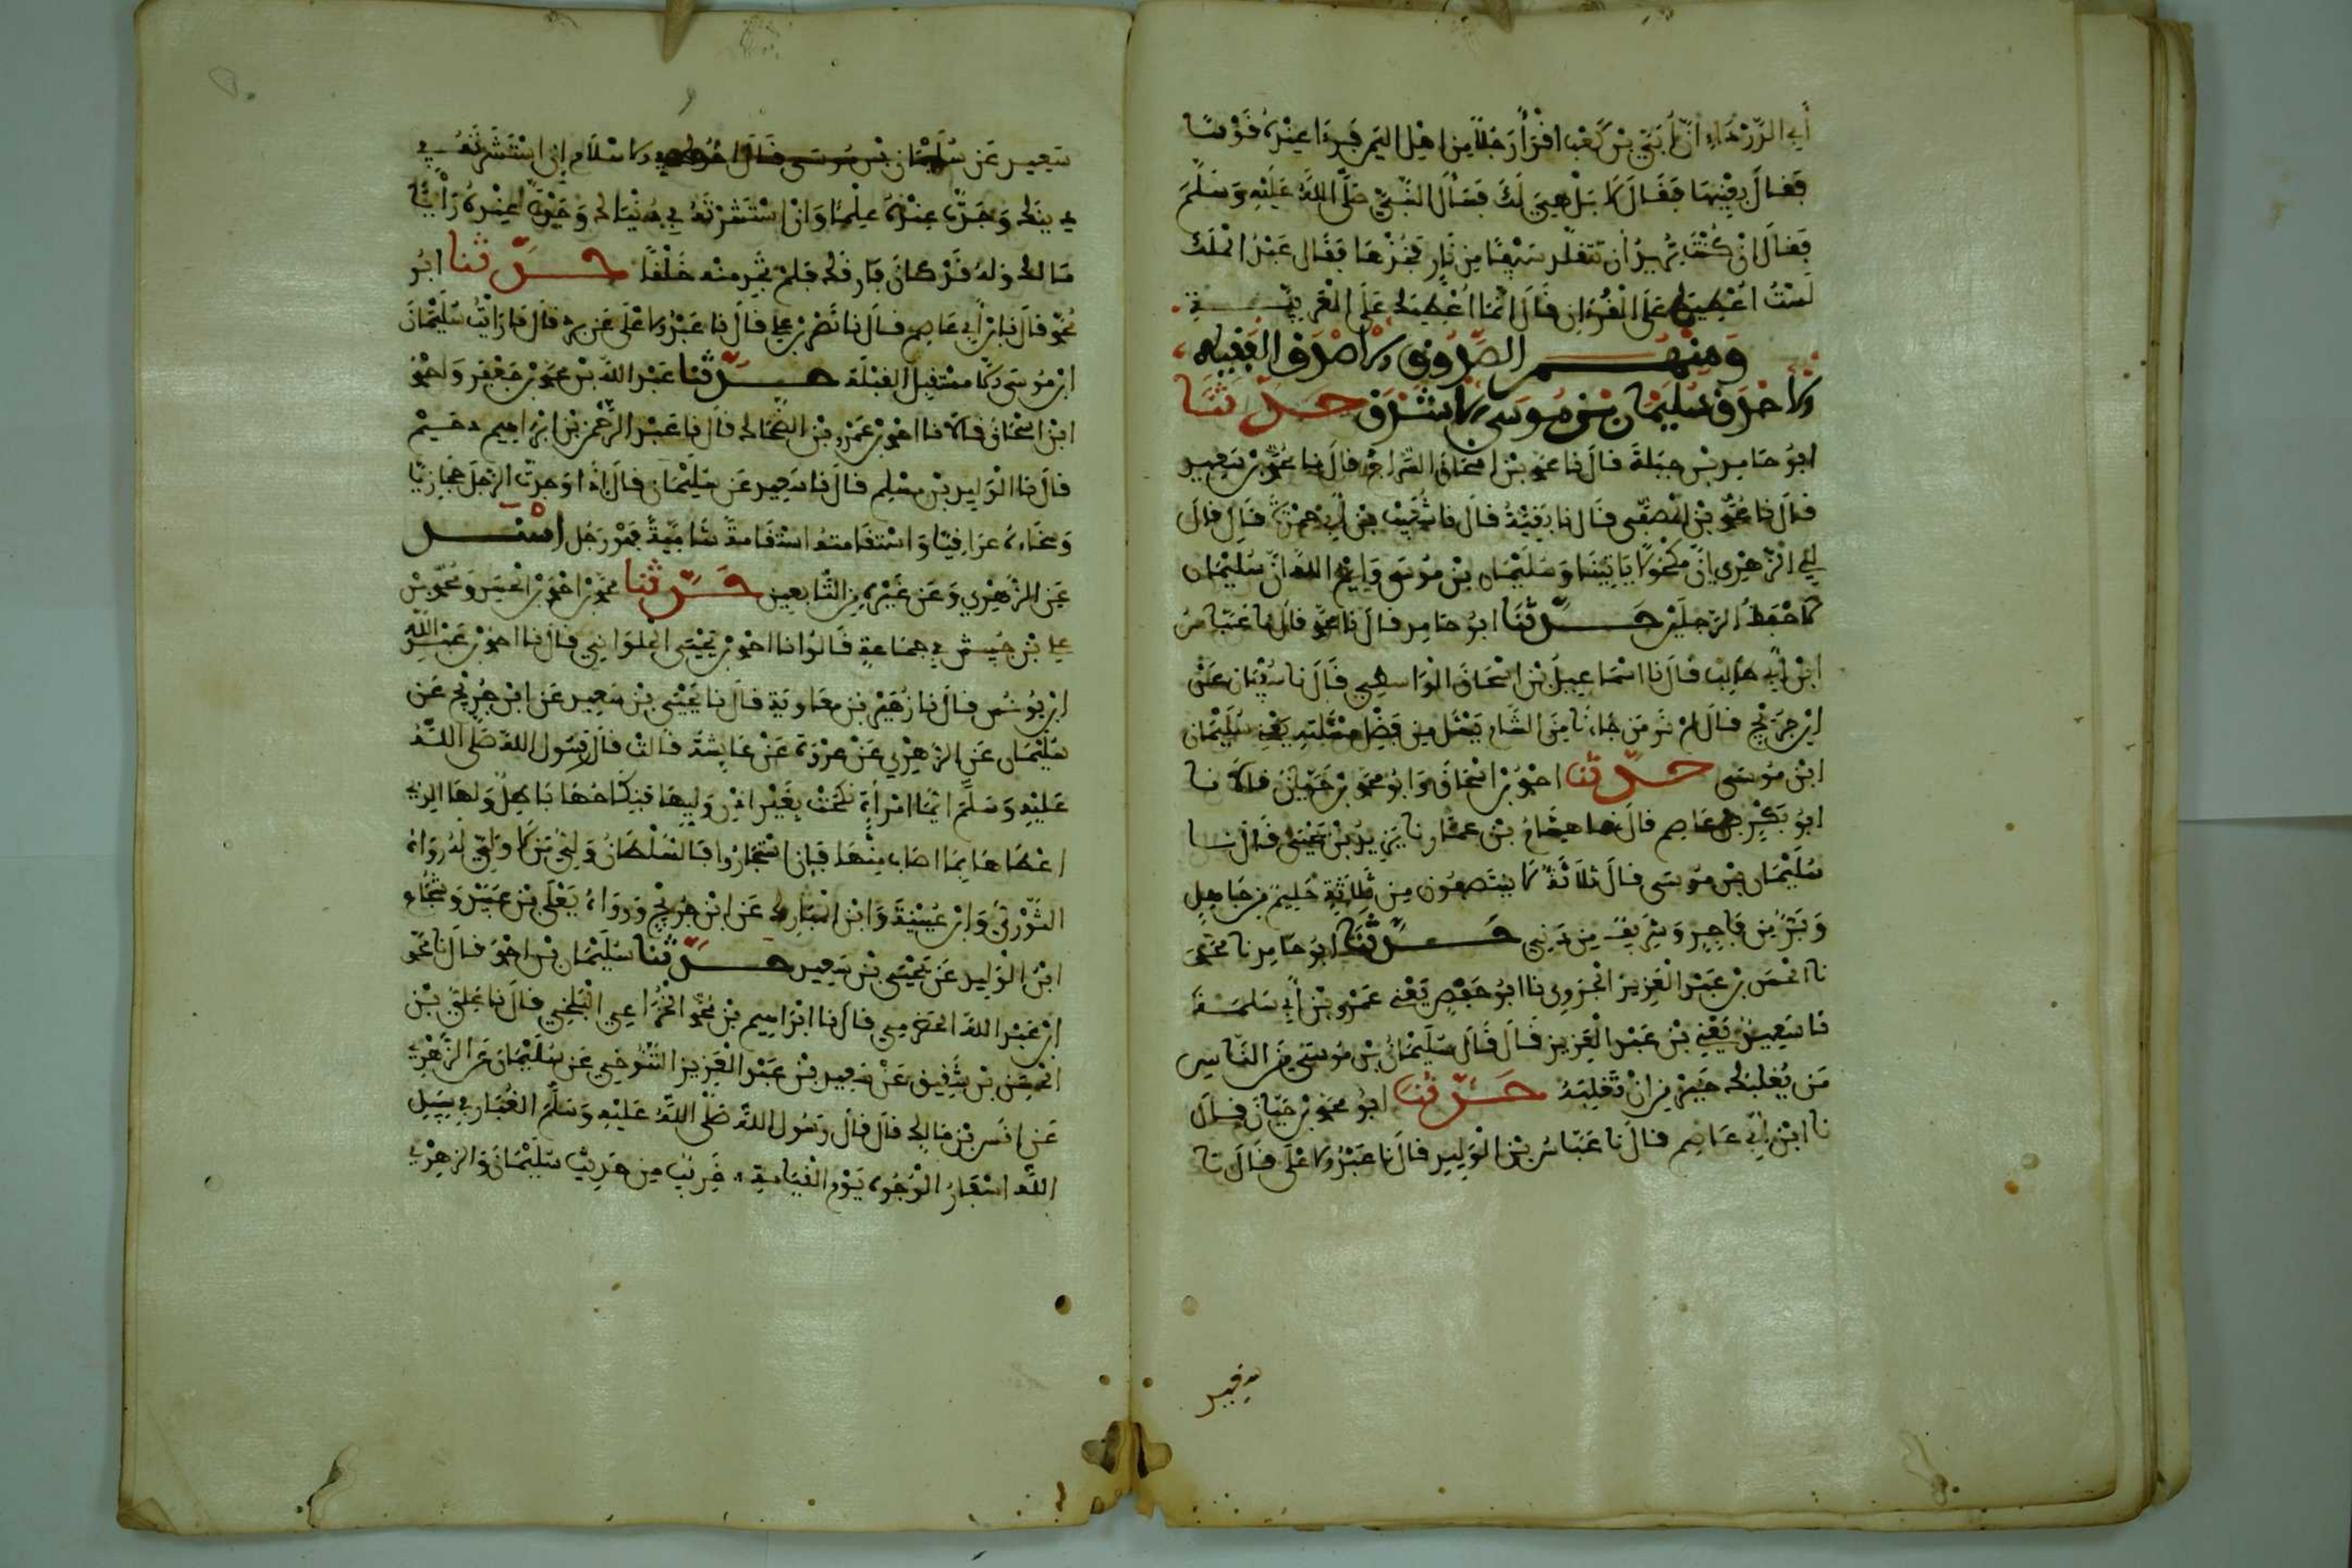 أبي الدرداء أن أبي بن كعب أقرأ رجلا من أهل اليمن فرءا عنده قوسا
فقال بعنيها فقال لا بل هي لك فسأل النبي صلى الله عليه وسلم
فقال إن كنت تريد أن تتقلد سيفا من نار فخذها فقال عبد الملك
لست أعطيك على القرءان قال إنما أعطيك على العربية
ومنهم الصدوق الاصدق الفقيه
الاحذق سليمان بن موسى الاشدق حدثنا
أبو حامد بن جبلة قال نا محمد بن اسحاق السراج قال نا محمد بن سعيد
قال نا محمد بن المصفى قال نا بقية قال نا شعيب بن أبي حمزة قال قال
لي الزهري إن مكحولا يأتينا وسليمان بن موسى وأيم الله إن سليمان
لأحفظ الرجلين حدثنا أبو حامد قال نا محمد قال نا عباس
ابن أبي طالب قال نا اسماعيل بن اسحاق قال نا سفيان عن
ابن جريج قال لم نر من جاءنا من الشام يسئل من فضل مسئلته يعني سليمان
ابن موسى حدثنا احمد بن اسحاق وابو محمد بن حيان قالا نا
أبو بكر بن عاصم قال نا هشام بن عمار نا يزيد بن يحيى قال نا
سليمان بن موسى قال ثلاثة لا ينتصفون من ثلاثة حليم من جاهل
وبر من فاجر وشريف من دني حدثنا أبو حامد نا محمد
نا الحسن بن عبد العزيز الجروي نا ابو حفص يعني عمرو بن أبي سلمة
نا سعيد يعني بن عبد العزيز قال قال سليمان بن موسى من الناس
من يغلبك خير من ان تغلبه حدثنا أبو محمد بن حيان قال
نا ابن أبي عاصم قال نا عباس بن الوليد قال نا عبد الاعلى قال نا
سعيد عن سليمان بن موسى قال الاسلام إن استشرته في
دينك وجدت عنده علما وان استشرته في دنياك وجدت عنده رأيا
مالك وله قد كان فارقك فلم تجد منه خلفا حدثنا أبو
محمد قال نا بن أبي عاصم قال نا نصر بن علي قال نا عبد الاعلى عن برد قال ما رأيت سليمان
ابن موسى الا مستقبل القبلة حدثنا عبد الله بن محمد بن جعفر واحمد
ابن اسحاق قالا نا احمد بن عمرو بن الضحاك قال نا عبد الرحمن بن ابراهيم دحيم
قال نا الوليد بن مسلم قال نا سعيد عن سليمان قال إذا وجدت الرجل حجازيا
وسخاءه عراقيا واستقامته استقامة شامية فهو رجل أسند
عن الزهري وعن غيره من التابعين حدثنا محمد بن احمد بن الحسن ومحمد بن
علي بن حبيش في جماعة قالوا نا احمد بن يحيى الحلواني قال نا احمد بن عبد الله
ابن يونس قال نا زهير بن معاوية قال نا يحيى بن سعيد عن ابن جريج عن
سليمان عن الزهري عن عروة عن عايشة قالت قال رسول الله صلى الله
عليه وسلم أيما امرأة نكحت بغير اذن وليها فنكاحها باطل ولها الذي
اعطاها بما اصاب منها فإن اشتجروا فالسلطان ولي من لا ولي له رواه
الثوري وابن عيينة وابن المبارك عن ابن جريج ورواه يعلى بن عبيد وشجاع
ابن الوليد عن يحيى بن سعيد حدثنا سليمان بن احمد قال نا محمد
ابن عبد الله الحضرمي قال نا ابراهيم بن محمد الخزاعي البلخي قال نا علي بن
الحسن بن شقيق عن سعيد بن عبد العزيز التنوخي عن سليمان عن الزهري
عن انس بن مالك قال قال رسول الله صلى الله عليه وسلم الغبار في سبيل
الله اسفار الوجوه يوم القيامة غريب من حديث سليمان والزهري